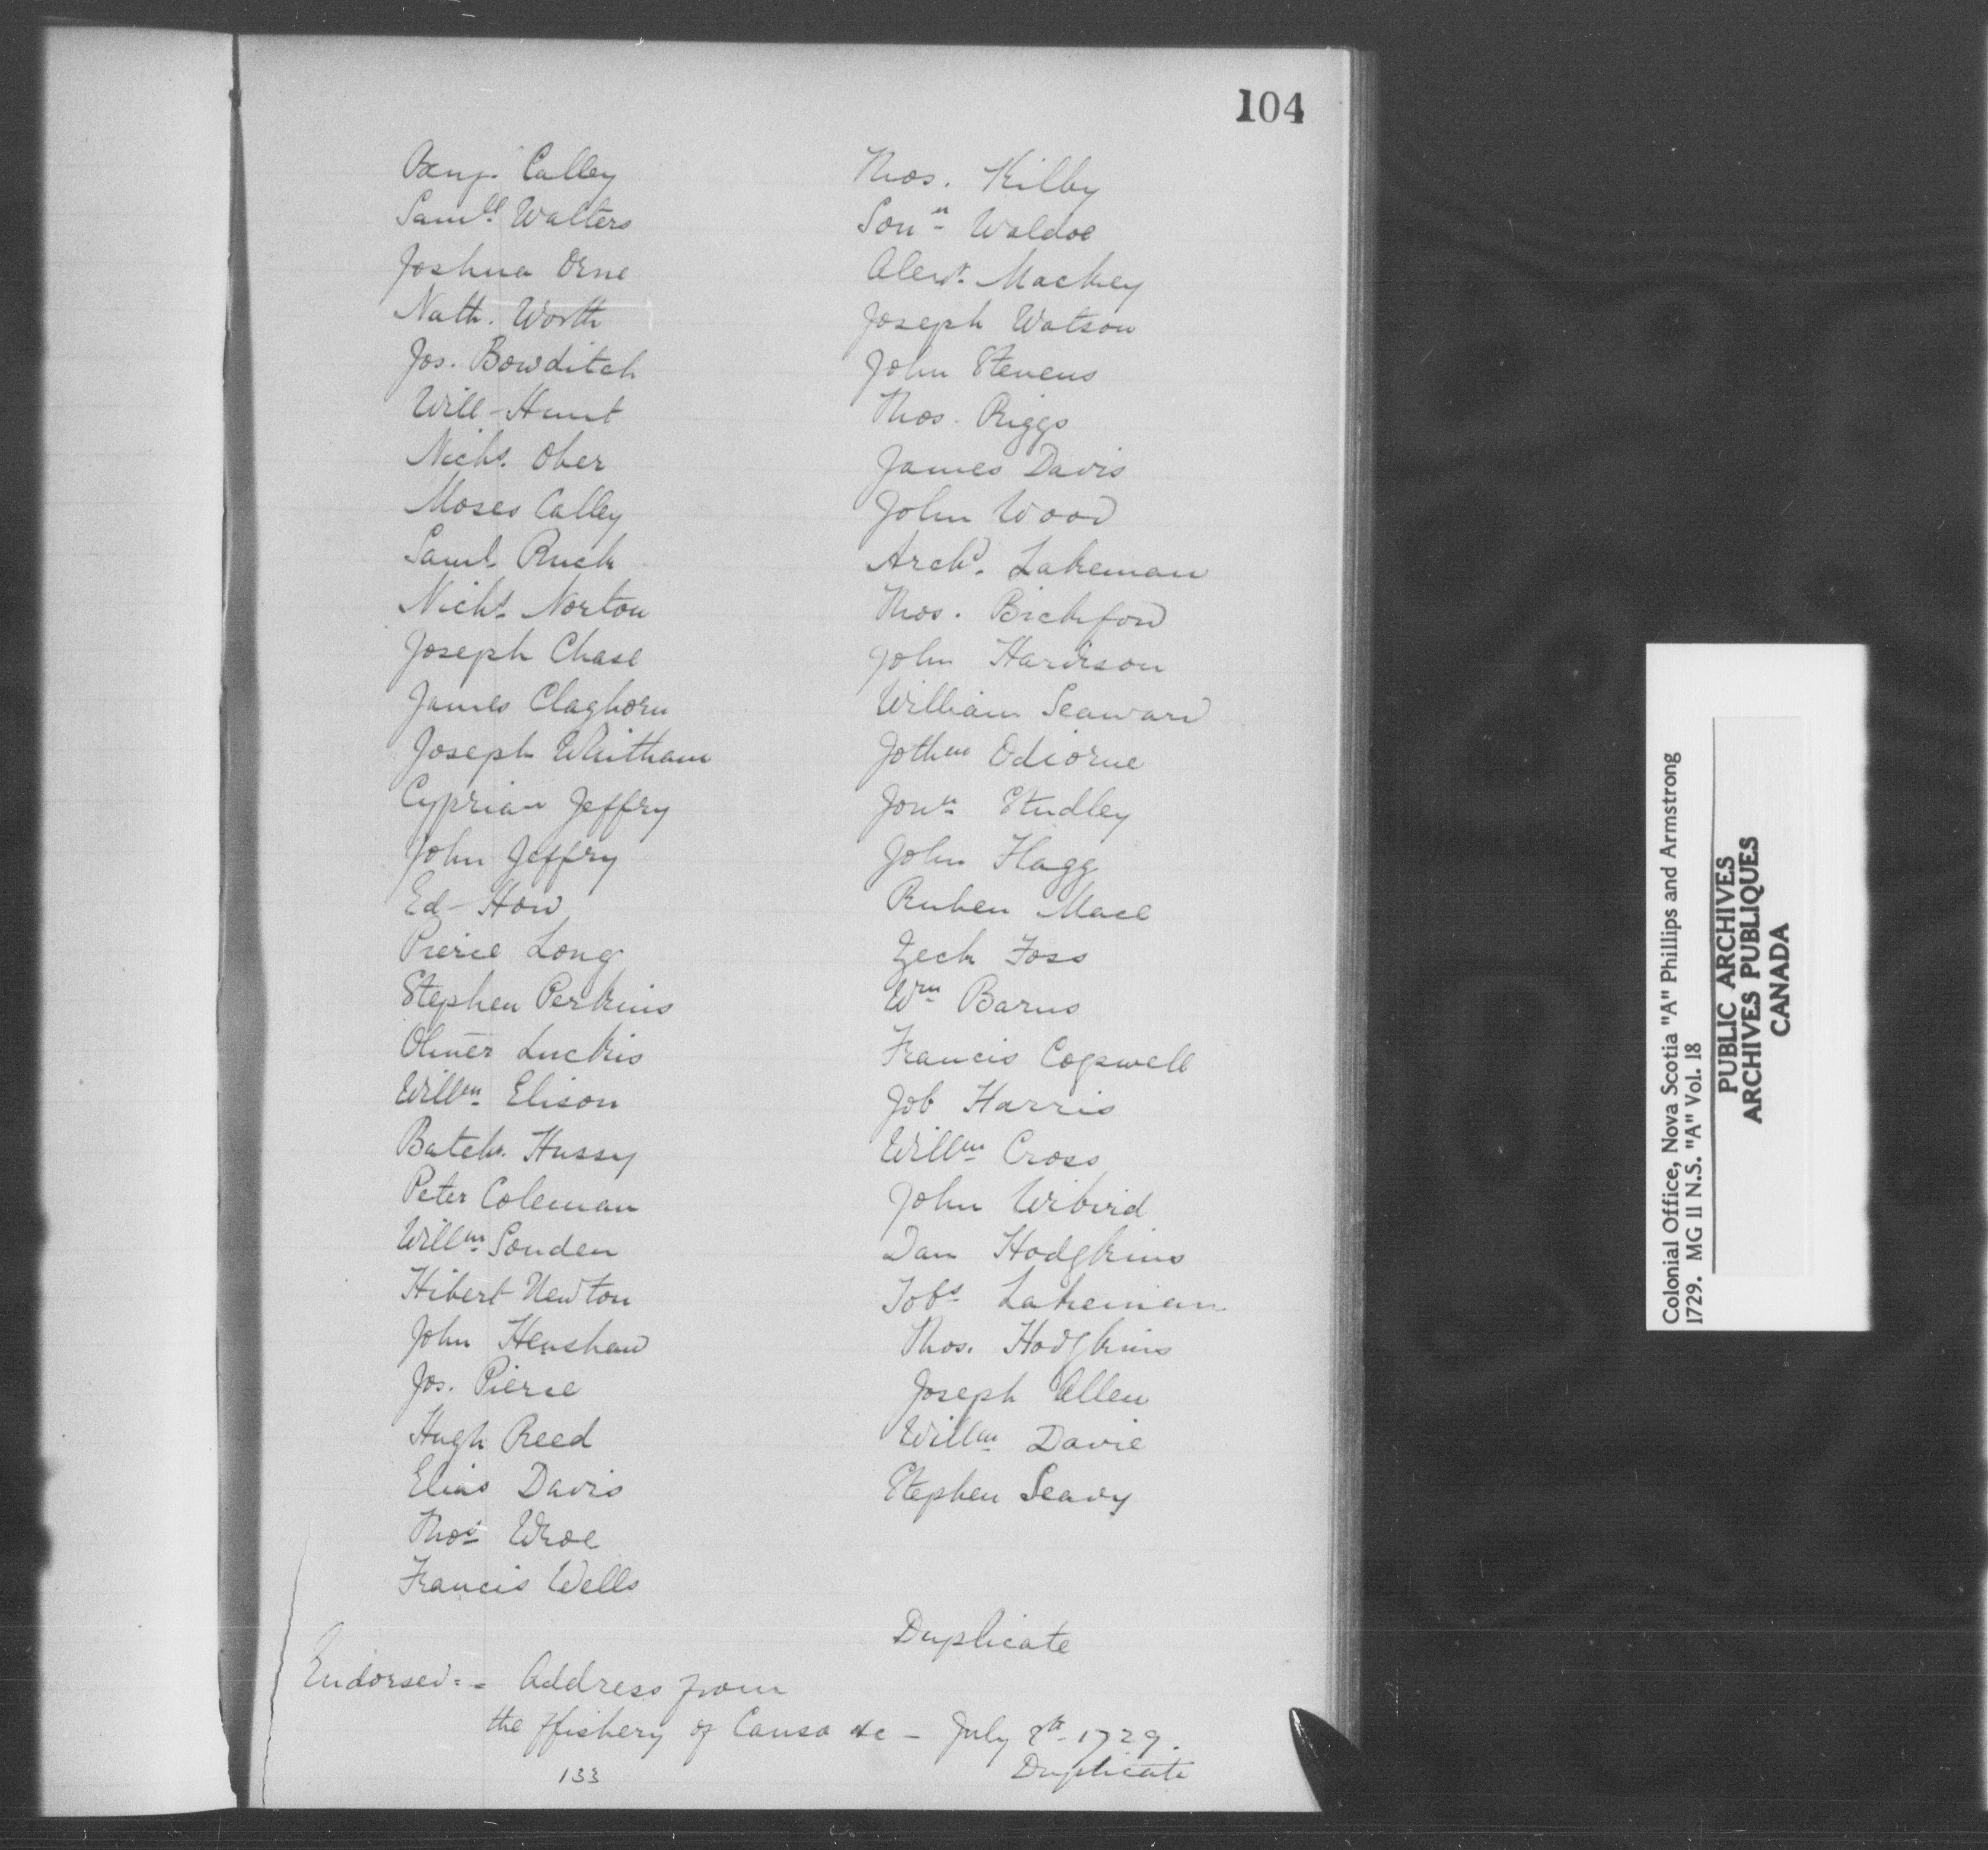 104
Benj. Calley
Samll Walters
Joshua Orne
Nath. Worth
Jos. Bowditch
Will Hunt
Nichs. Ober
Moses Calley
Saml Ruck
Nichs Norton
Joseph Chase
James Claghorn
Joseph Whitham
Cyprian Jeffry
John Jeffry
Ed How
Pierce Long
Stephen Perkins
Oliver Luckis
Willm Elison
Batch. Hussy
Peter Coleman
Willm Souden
Hibert Newton
John Henshaw
Jos. Pierce
Hugh Reed
Elias Davis
Thos Wroe
Francis Wells
Thos. Kilby
Jonn Waldoe
Alexr. Mackey
Joseph Watson
John Stevens
Thos. Riggs
James Davis
John Wood
Archd. Lakeman
Thos. Bickford
John Hardison
William Seaward
Jothm Odiorne
Jonn Studley
John Flagg
Ruben Mace
Zech Foss
Wm Barns
Francis Cogswell
Job Harris
Willm Cross
John Wibird
Dan Hodgkins
Tobs Lakeman
Thos. Hodgkins
Joseph Allen
Willm Davie
Stephen Seavy
Duplicate
Endorsed:- Address from
the ffishery of Canso &c - July 8th 1729.
Duplicate
133
Colonial Office, Nova Scotia "A" Phillips and Armstrong
1729. MG 11 N.S. "A" Vol. 18
PUBLIC ARCHIVES
ARCHIVES PUBLIQUES
CANADA